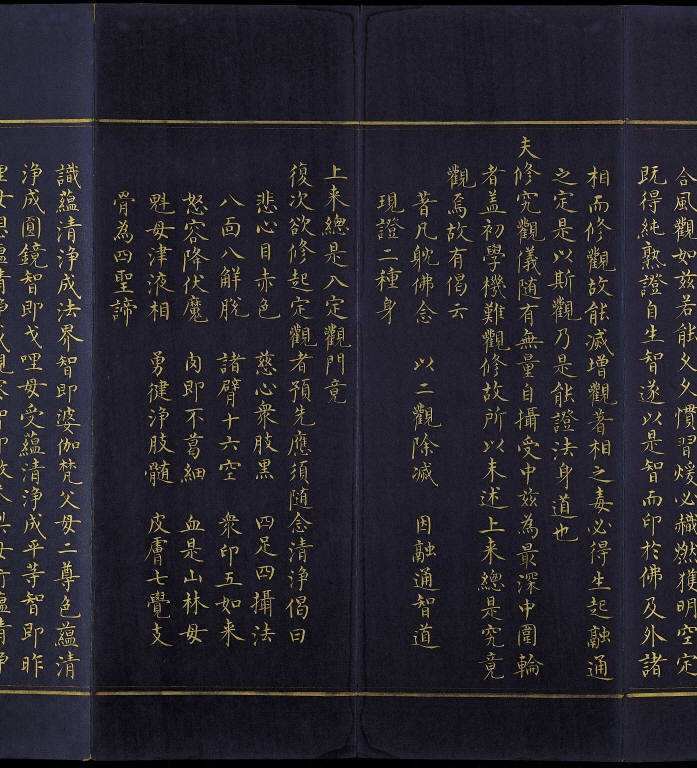 合風觀如玆若能久久慣習煖必熾燃獲明空定
既得純熟證自生智遂以是智而印於佛及外諸
相而修觀故能滅增觀著相之毒必得生起融通
之定是以斯觀乃是能證法身道也
夫修究觀儀随有無量自攝受中玆為最深中圍輪
者盖初學機難觀修故所以未述上来總是究竟
觀焉故有偈云
著凡躭佛念 以二觀除滅 因融通智道
現證二種身
上来總是入定觀門竟
復次欲修起定觀者預先應須随念清淨偈曰
悲心目赤色 慈心衆肢黑 四足四攝法
八面八解脫 諸臂十六空 衆印五如来
怒容降伏魔 肉即不葛細 血是山林母
魁母津液相 勇健淨肢髄 皮膚七覺支
骨為四聖諦
識蘊清淨成法界智即婆伽梵父母二尊色蘊清
淨成圓鏡智即戈哩母受蘊清淨成平等智即昨